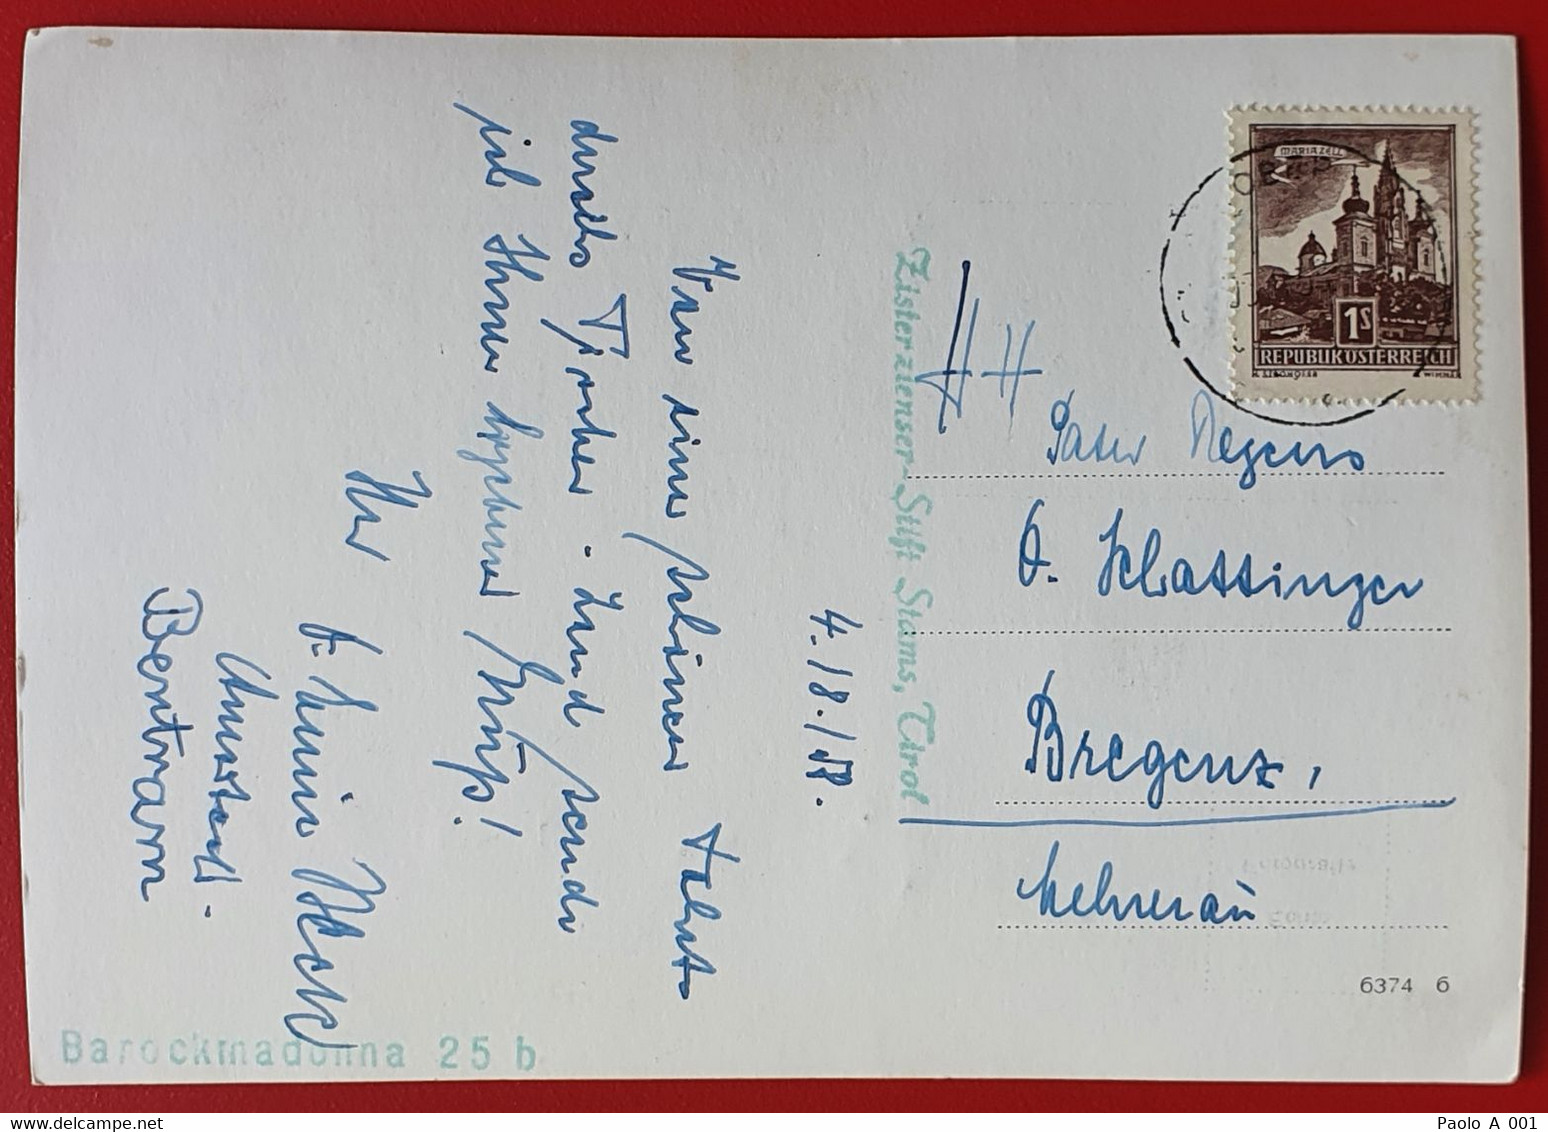 4./8./58.
Von einer schönen Fahrt
durchs Tiroler-Land sende
ich Ihnen ergebene Grüße!
Ihr
Bertram
Zisterzienser-Stift Stams, Tirol
HH
Pater Regens
Bregenz,
Mehrerau
MARIAZELL
1S
REPUBLIK ÖSTERREICH
6374 6
Barockmadonna 25 b
www.delcampe.net
Paolo A 001